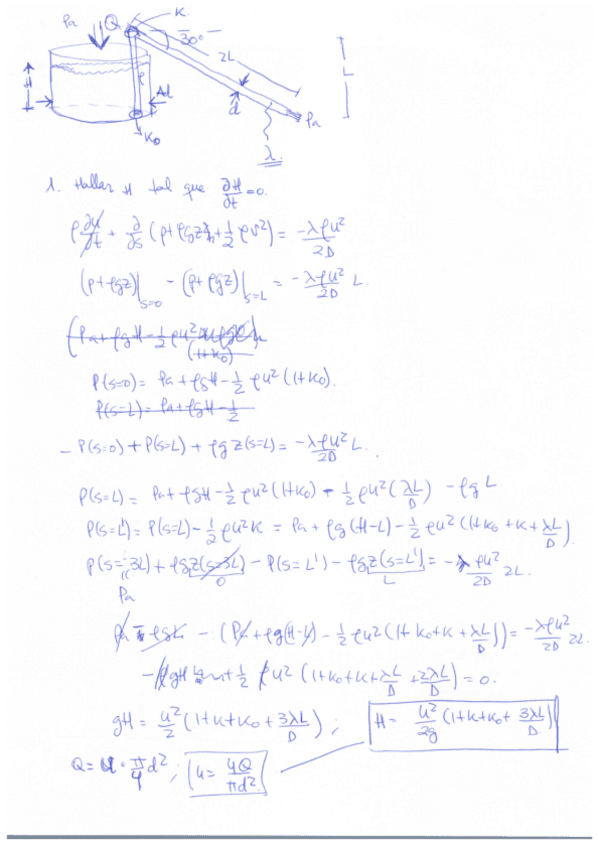 Pa
Q
K.
30°
2L
H
ρ
Ad
d
L
Pa
K₀
λ
1. Hallar H tal que ∂H/∂t = 0.
ρ ∂u/∂t + ∂/∂s (p + ρgz + ½ ρv²) = -λρu²/2D
(p + ρgz)|s=0 - (p + ρgz)|s=L = -λρu²/2D L.
(Pa + ρgH - ½ ρu² (1+K₀)
P(s=0) = Pa + ρgH - ½ ρu² (1+K₀).
P(s=L) = Pa + ρgH - ½
- P(s=0) + P(s=L) + ρg z(s=L) = -λρu²/2D L.
P(s=L) = Pa + ρgH - ½ ρu² (1+K₀) - ½ ρu² (λL/D) - ρgL
P(s=L') = P(s=L) - ½ ρu² K = Pa + ρg (H-L) - ½ ρu² (1+K₀+K+λL/D).
P(s=3L) + ρg z(s=3L) - P(s=L') - ρg z(s=L') = -λ ρu²/2D 2L.
Pa 0 L
- (Pa + ρg(H-L) - ½ ρu² (1+K₀+K+λL/D)) = -λρu²/2D 2L.
- ρgH + ½ ρu² (1+K₀+K+λL/D + 2λL/D) = 0.
gH = u²/2 (1+K+K₀+3λL/D) ; H = u²/2g (1+K+K₀+3λL/D)
Q = u · π/4 d² ; u = 4Q/πd²